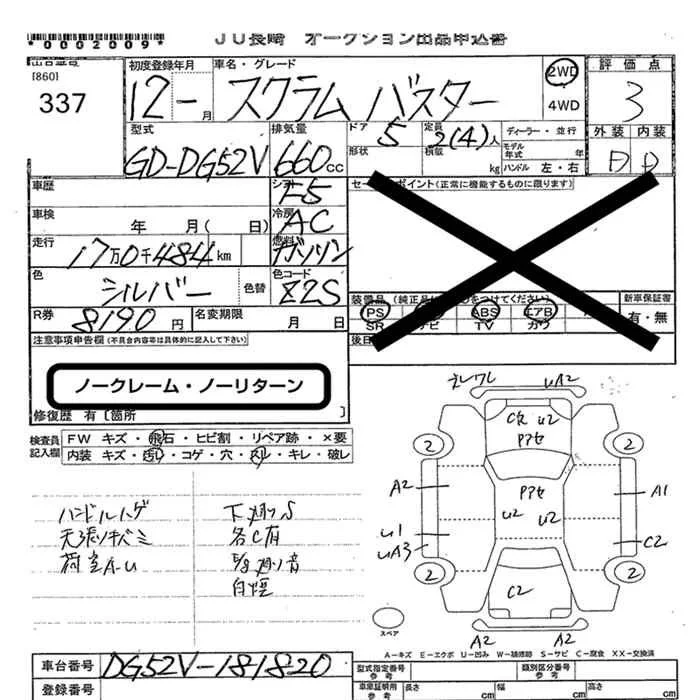 *0002009*
JU長崎 オークション出品申込書
[860]
337
初度登録年月
12 - 月
車名・グレード
スクラム バスター
2WD
4WD
評価点
3
外装 内装
D D
型式
GD-DG52V
排気量
660cc
ドア
5
形状
定員
2(4)人
積載
kg
ディーラー・並行
モデル年式 年
ハンドル 左・右
車歴
シフト
F5
セールスポイント(正常に機能するものに限ります)
車検
年 月( 日)
冷房
AC
走行
17万0千484km
燃料
ガソリン
色
シルバー
色替
色コード
Z2S
R券
8190円
名変期限
月 日
装備品 (純正品に○をつけてください)
PS ABS エアB
SR ナビ TV カワ
新車保証書
有・無
注意事項申告欄(不具合内容等は具体的に記入して下さい)
ノークレーム・ノーリターン
修復歴 有〔箇所 〕
検査員記入欄
FW キズ・飛石・ヒビ割・リペア跡・×要
内装 キズ・汚れ・コゲ・穴・スレ・キレ・破レ
ハンドルハゲ
天張リキバミ
荷室A-U
下廻りS
各C有
E/g廻り音
白煙
ズレワレ UA2
C欠 U2
Pアセ
2 2
A2
Pアセ
A1
U2 U2
U1
UA3
C2
2 2
C2
スペア
A2 A2
A-キズ E-エクボ U-凹み W-補修跡 S-サビ C-腐食 XX-交換済
車台番号
DG52V-181820
登録番号
型式指定番号
参考
類別区分番号
参考
車庫証明用
参考
長さ cm
幅 cm
高さ cm